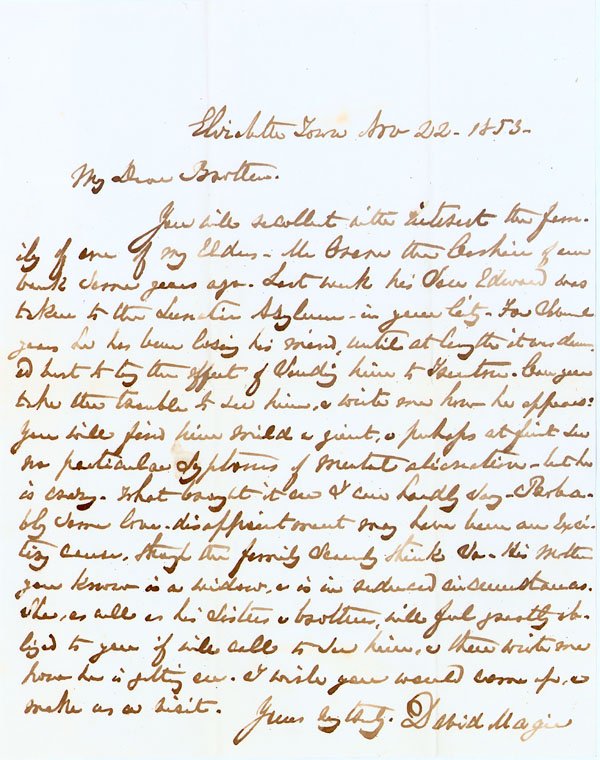 Elizabeth Town Nov 22 - 1853 -
My Dear Brother.
You will recollect with interest the fam-
ily of one of my Elders - Mr the Cashier of our
bank some years ago. Last week his Son Edward was
taken to the Lunatic Asylum - in your City - For Some
years he has been losing his mind, until at length it was deem-
ed best to try the effect of Sending him to Trenton. Can you
take the trouble to see him, & write me how he appears?
You will find him mild & quiet, & perhaps at first see
no particular Symptoms of mental alienation - but he
is crazy. What brought it on I can hardly Say - Proba-
bly Some love-disappointment may have been an Exci-
ting cause, though the family Scarcely think So - His Mother
you know is a widow, & is in reduced circumstances.
She, as well as his Sisters & brothers, will feel greatly ob-
liged to you if will call to See him, & then write me
how he is getting on. I wish you would come up, &
make us a visit. Yours David Magie